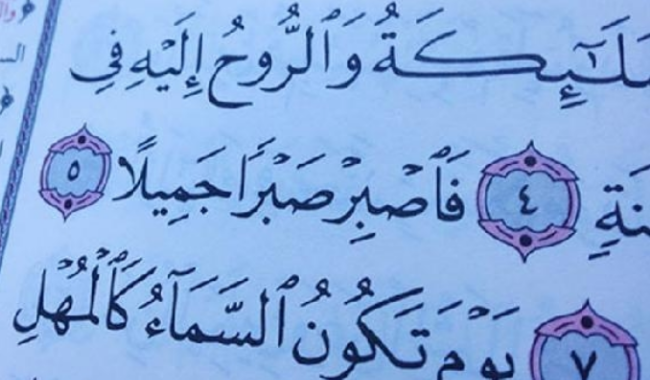 ٱلْمَلَـٰٓئِكَةُ وَٱلرُّوحُ إِلَيْهِ فِى
سَنَةٍ ٤ فَٱصْبِرْ صَبْرًا جَمِيلًا ٥
٧ يَوْمَ تَكُونُ ٱلسَّمَآءُ كَٱلْمُهْلِ